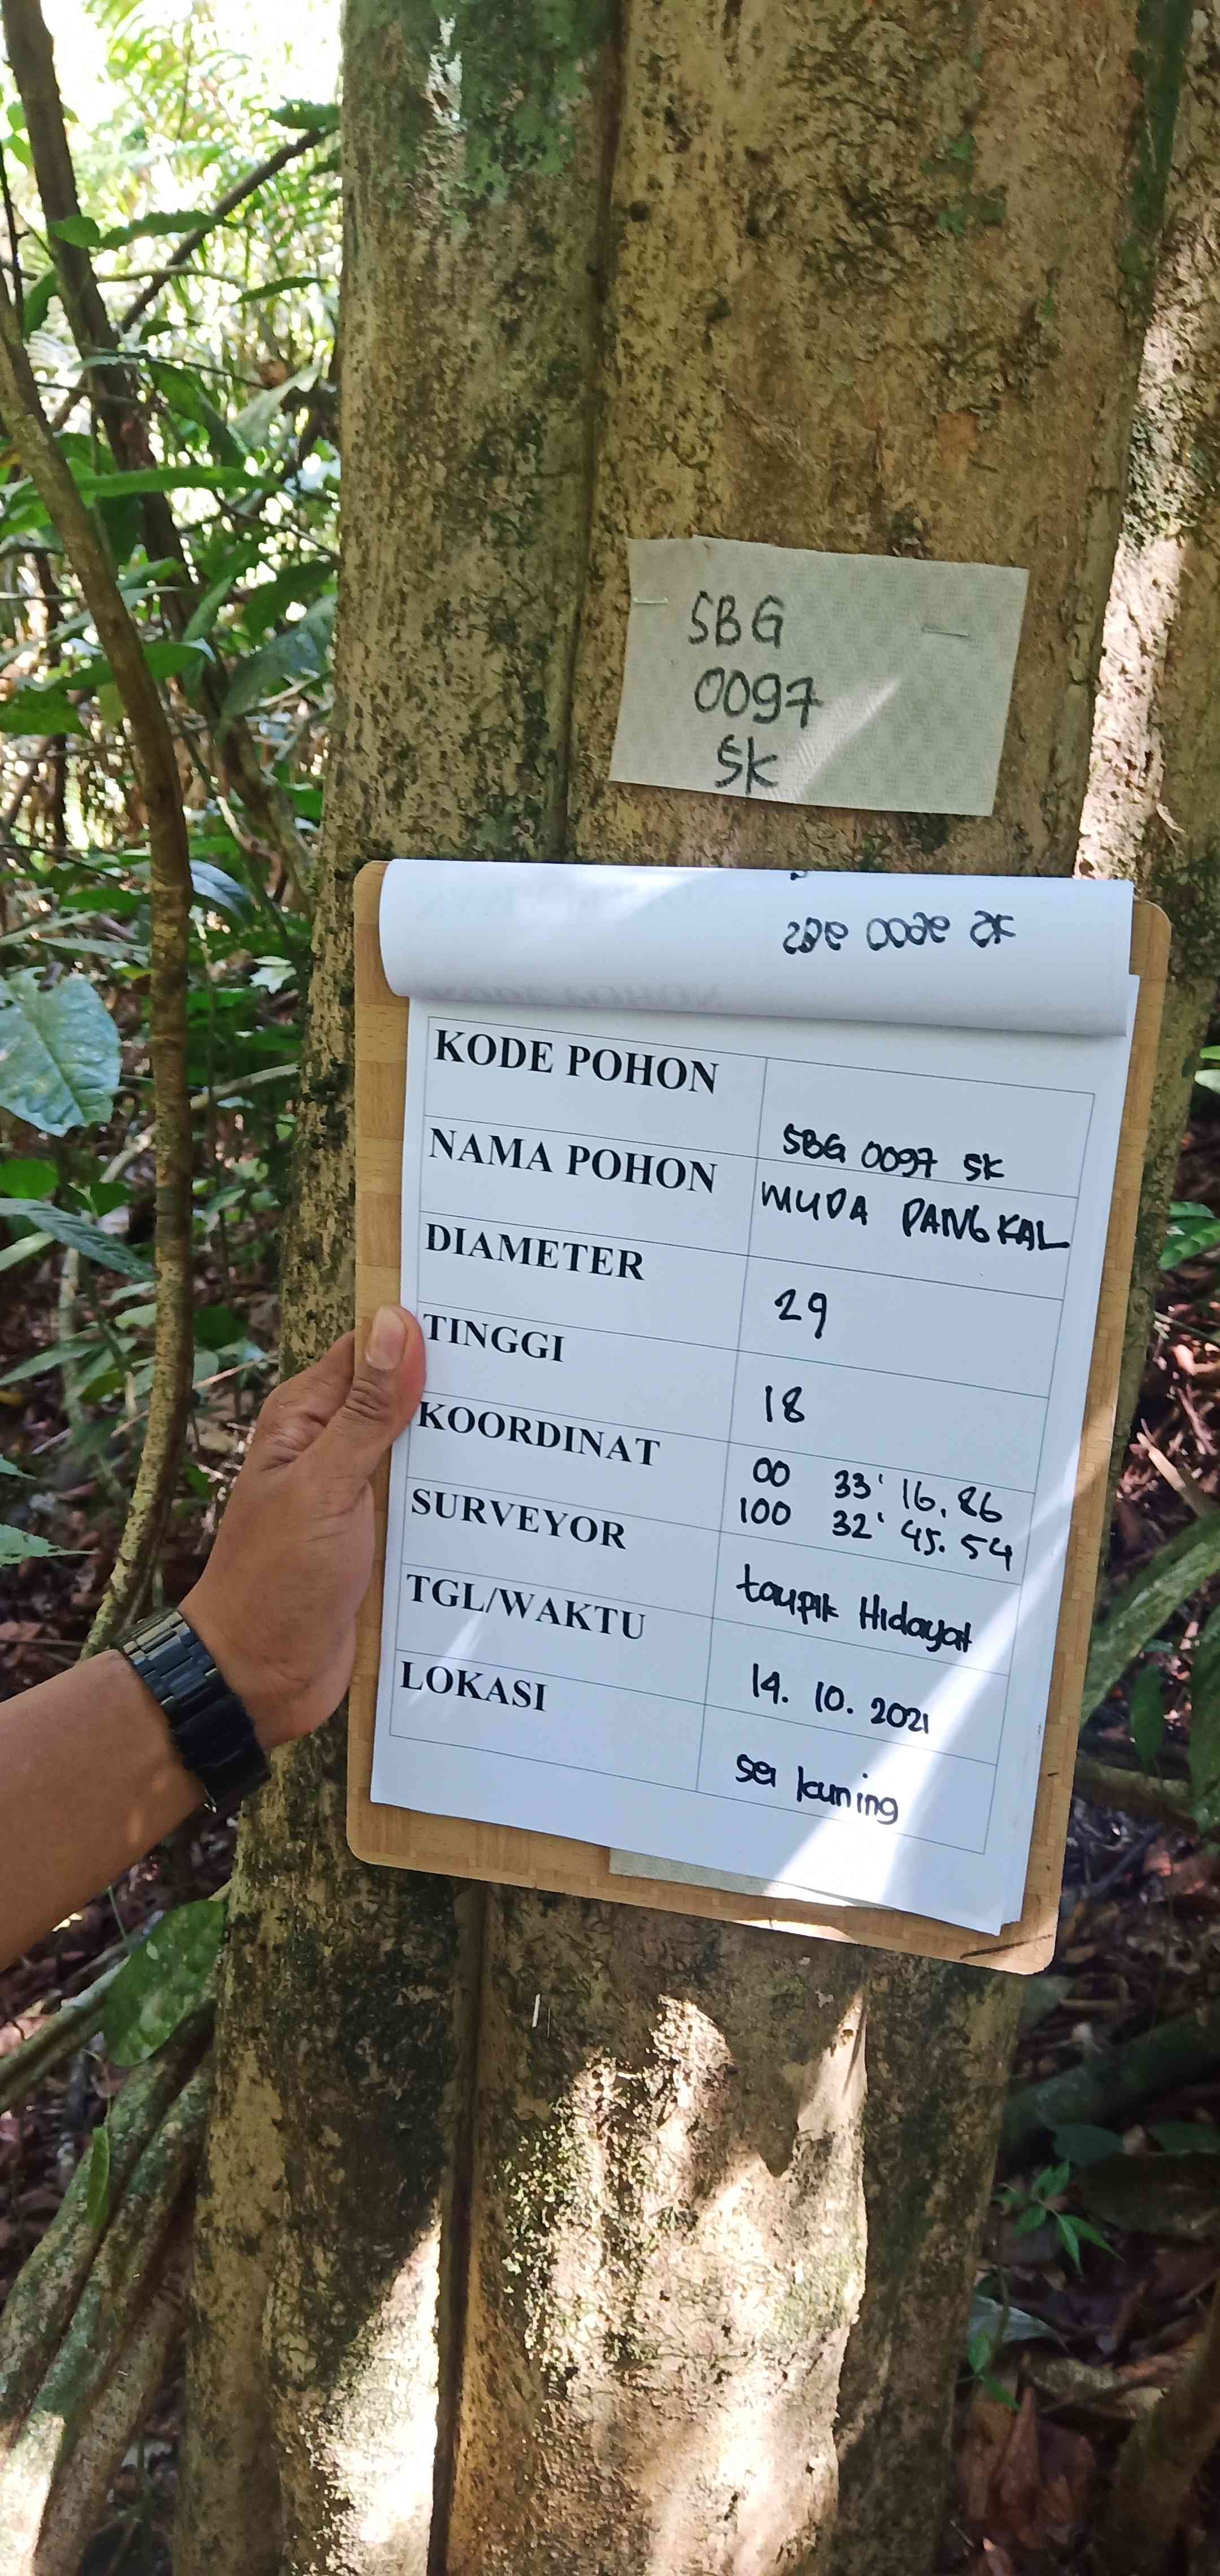 SBG
0097
SK
KODE POHON SBG 0097 SK
NAMA POHON MUDA PANGKAL
DIAMETER 29
TINGGI 18
KOORDINAT 00 33' 16.86
100 32' 45.54
SURVEYOR taupik Hidayat
TGL/WAKTU 14. 10. 2021
LOKASI sei kuning